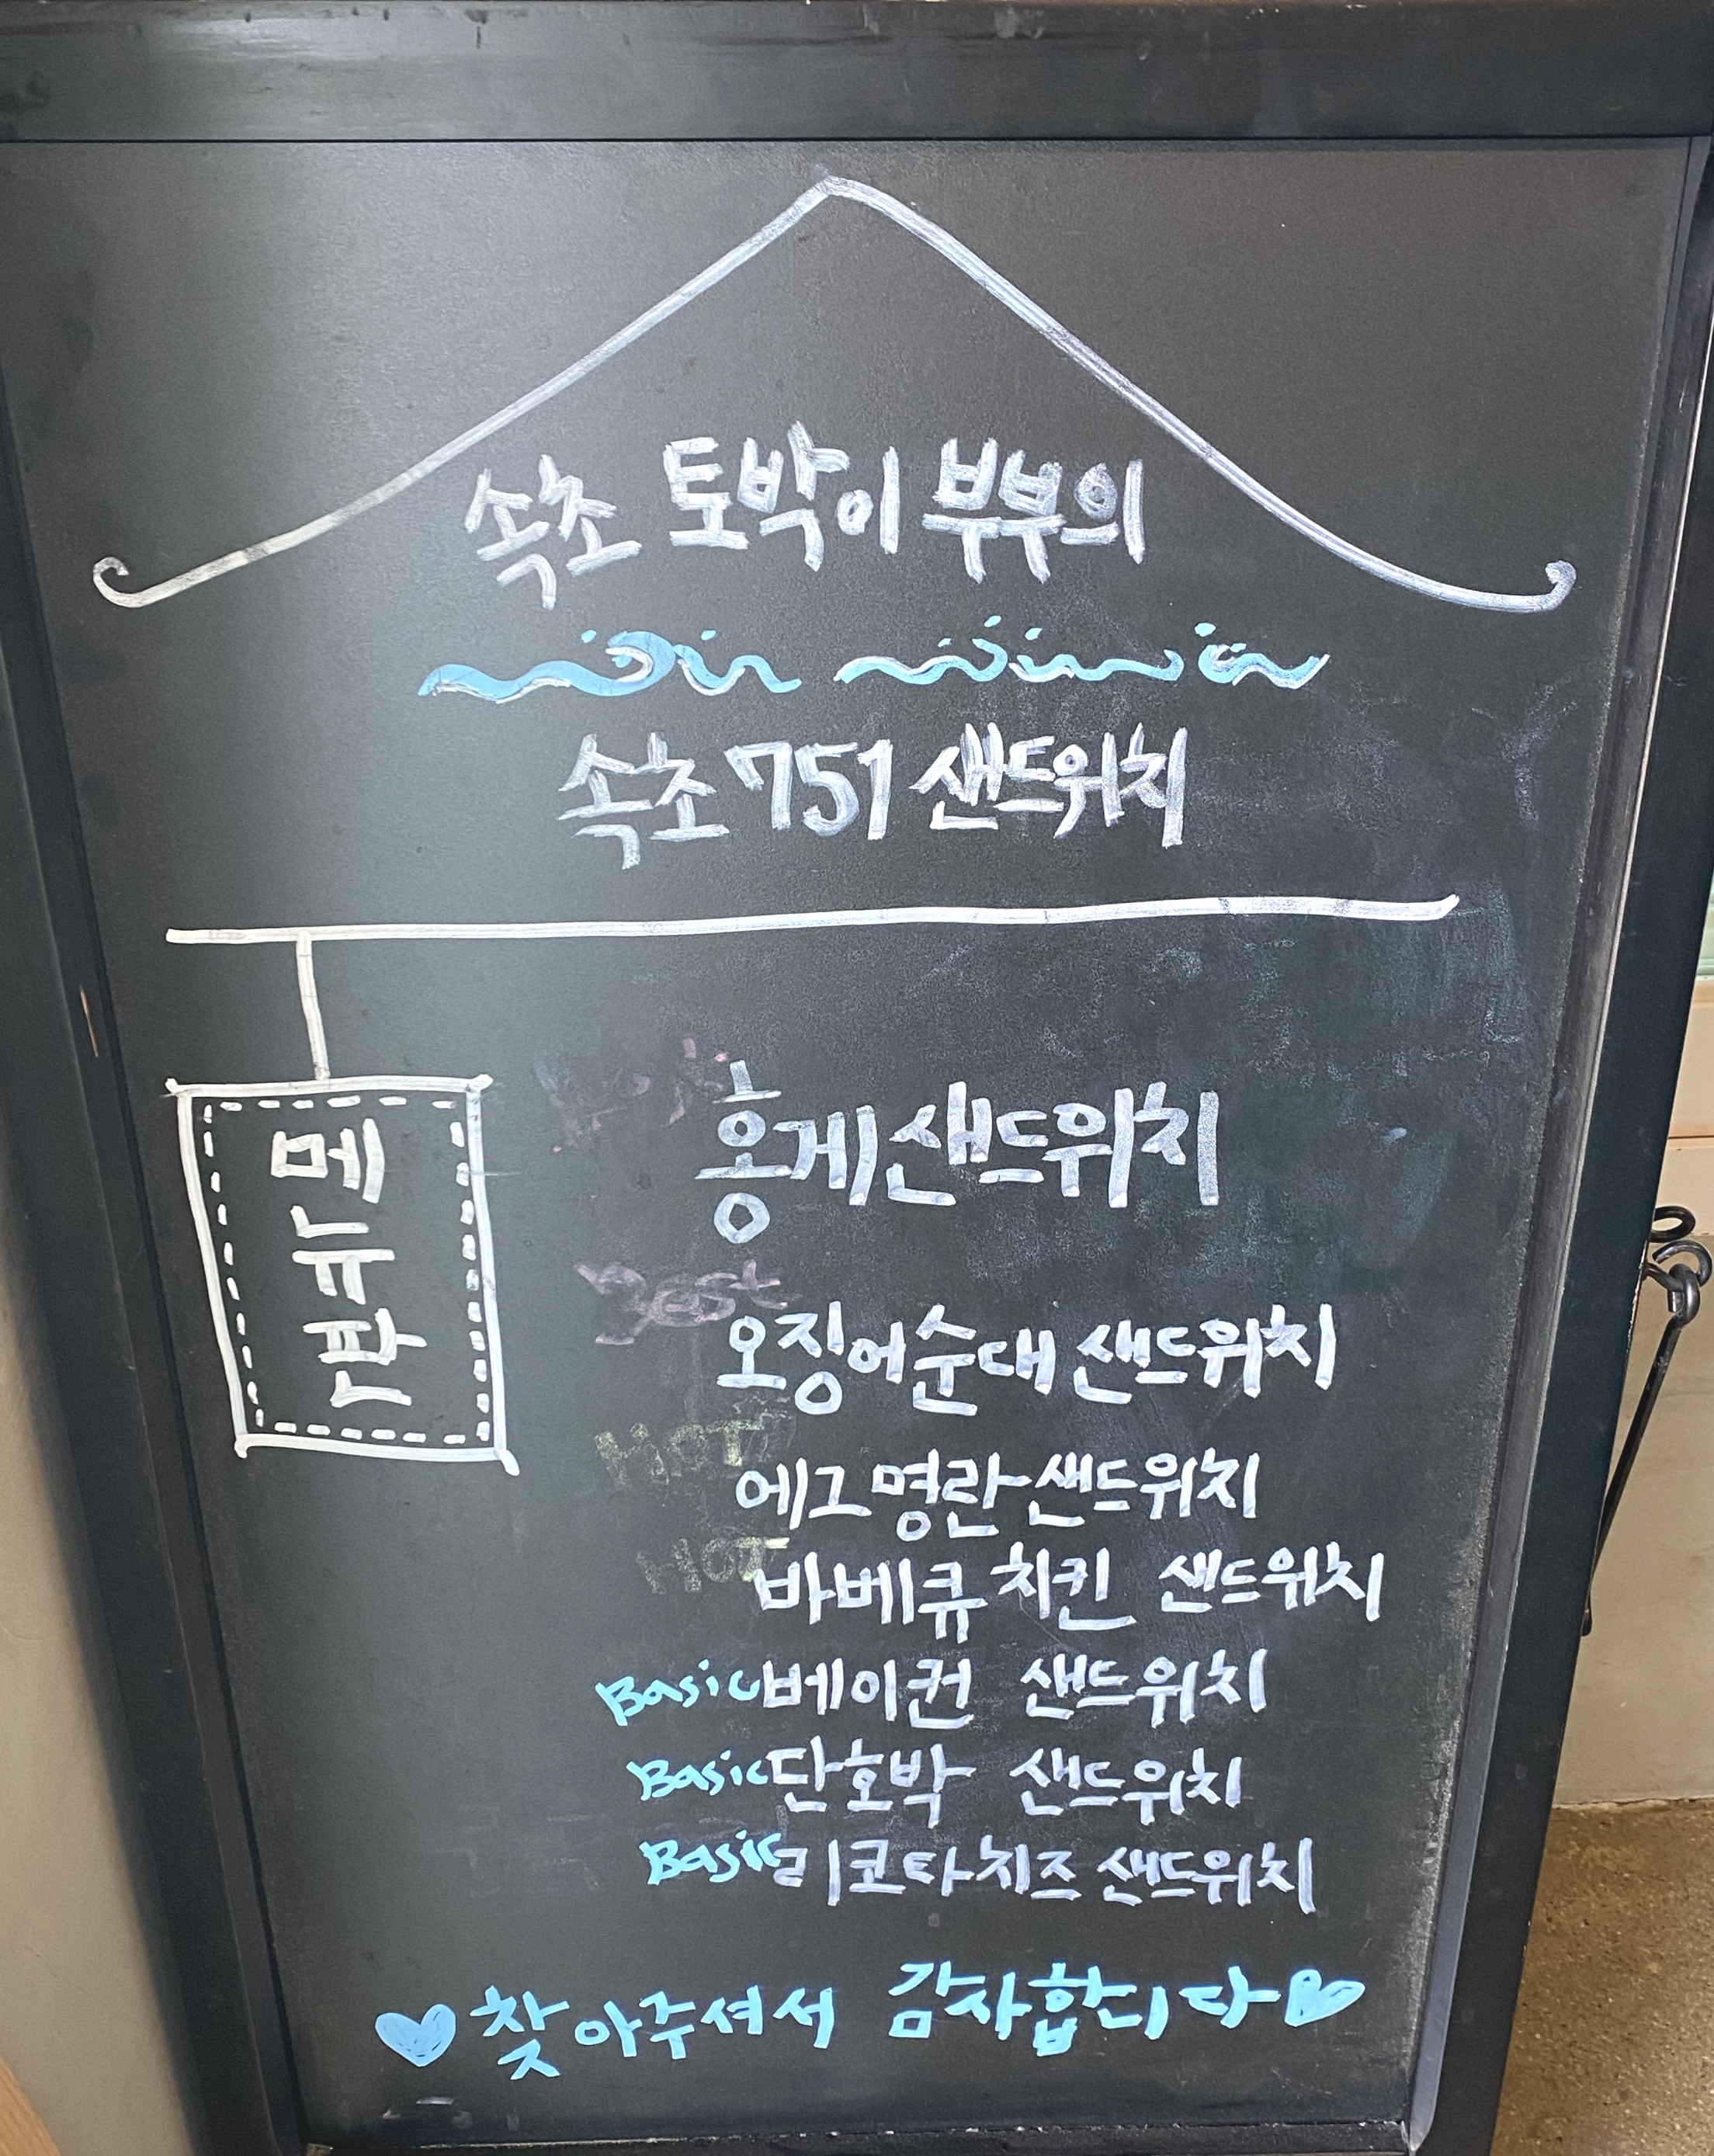 속초 토박이 부부의
속초 751 샌드위치
메뉴판
홍게샌드위치
Best
오징어순대 샌드위치
HOT
에그명란샌드위치
HOT
바베큐 치킨 샌드위치
Basic 베이컨 샌드위치
Basic 단호박 샌드위치
Basic 리코타치즈 샌드위치
찾아주셔서 감사합니다